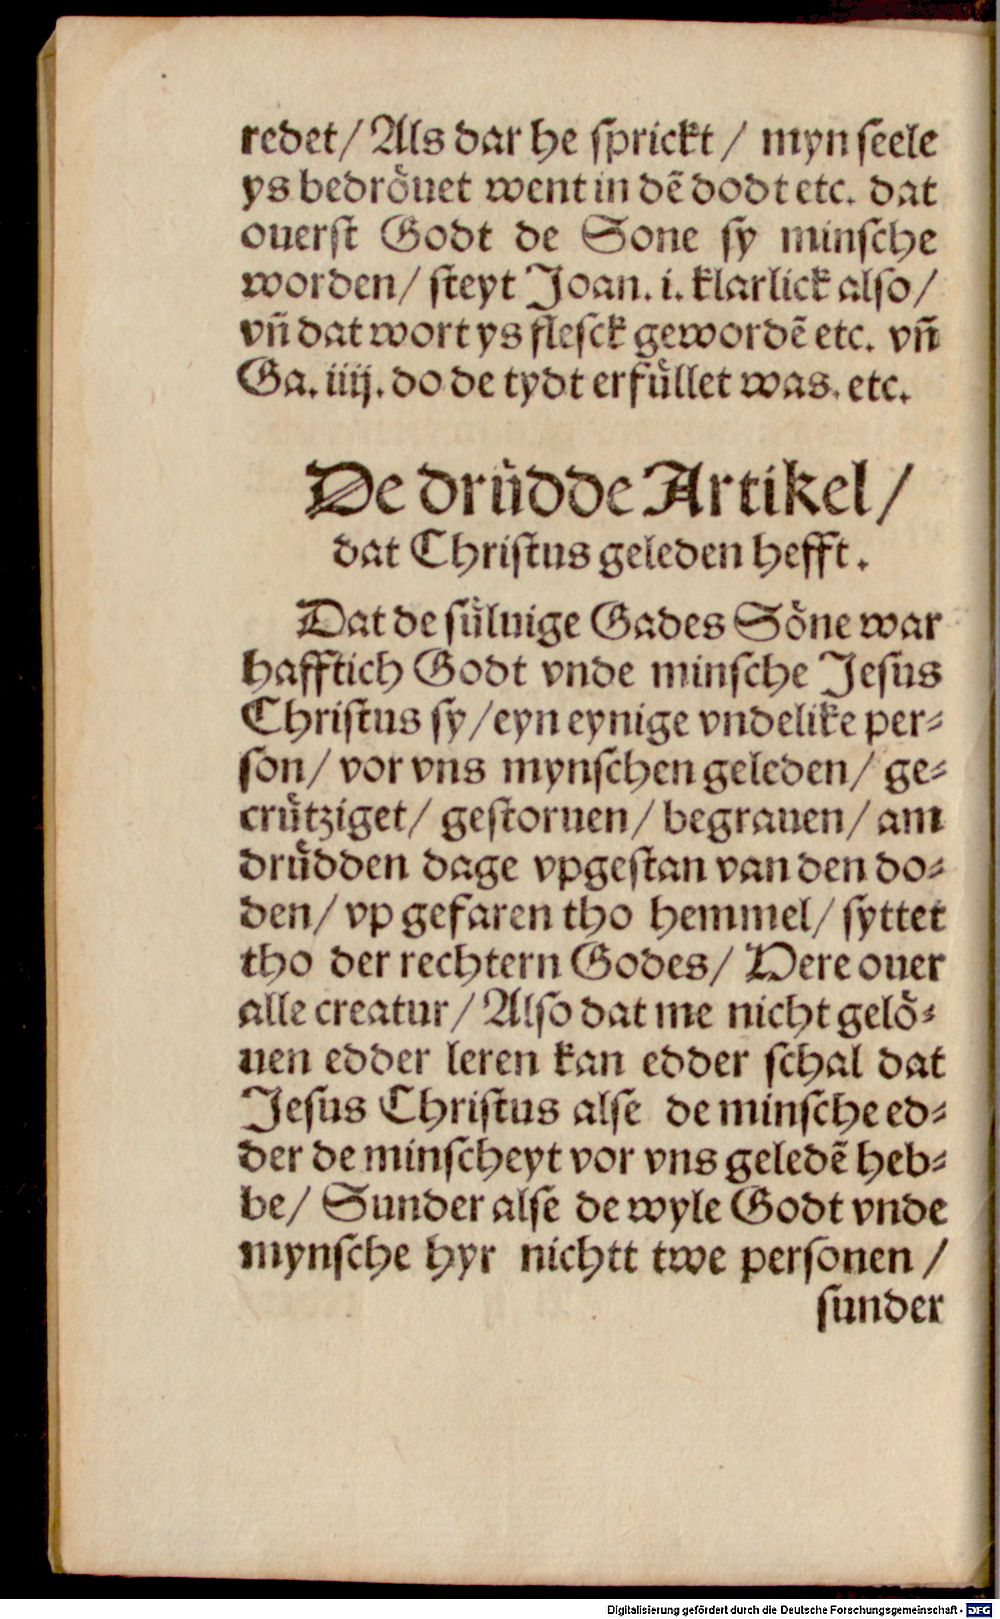 redet/ Als dar he ſprickt/ myn ſeele
ys bedroͤuet went in dē dodt etc. dat
ouerſt Godt de Sone ſy minſche
worden/ ſteyt Joan. i. klarlick alſo/
vñ dat wort ys fleſck gewordē etc. vñ
Ga. iiij. do de tydt erfuͤllet was. etc.
De druͤdde Artikel/
dat Chriſtus geleden hefft.
Dat de ſuͤluige Gades Soͤne war
hafftich Godt vnde minſche Jeſus
Chriſtus ſy/ eyn eynige vndelike per⸗
ſon/ vor vns mynſchen geleden/ ge⸗
cruͤtziget/ geſtoruen/ begrauen/ am
druͤdden dage vpgeſtan van den do⸗
den/ vp gefaren tho hemmel/ ſyttet
tho der rechtern Godes/ Here ouer
alle creatur/ Alſo dat me nicht geloͤ⸗
uen edder leren kan edder ſchal dat
Jeſus Chriſtus alſe de minſche ed⸗
der de minſcheyt vor vns geledē heb⸗
be/ Sunder alſe de wyle Godt vnde
mynſche hyr nichtt twe perſonen/
ſunder
Digitalisierung gefördert durch die Deutsche Forschungsgemeinschaft - DFG